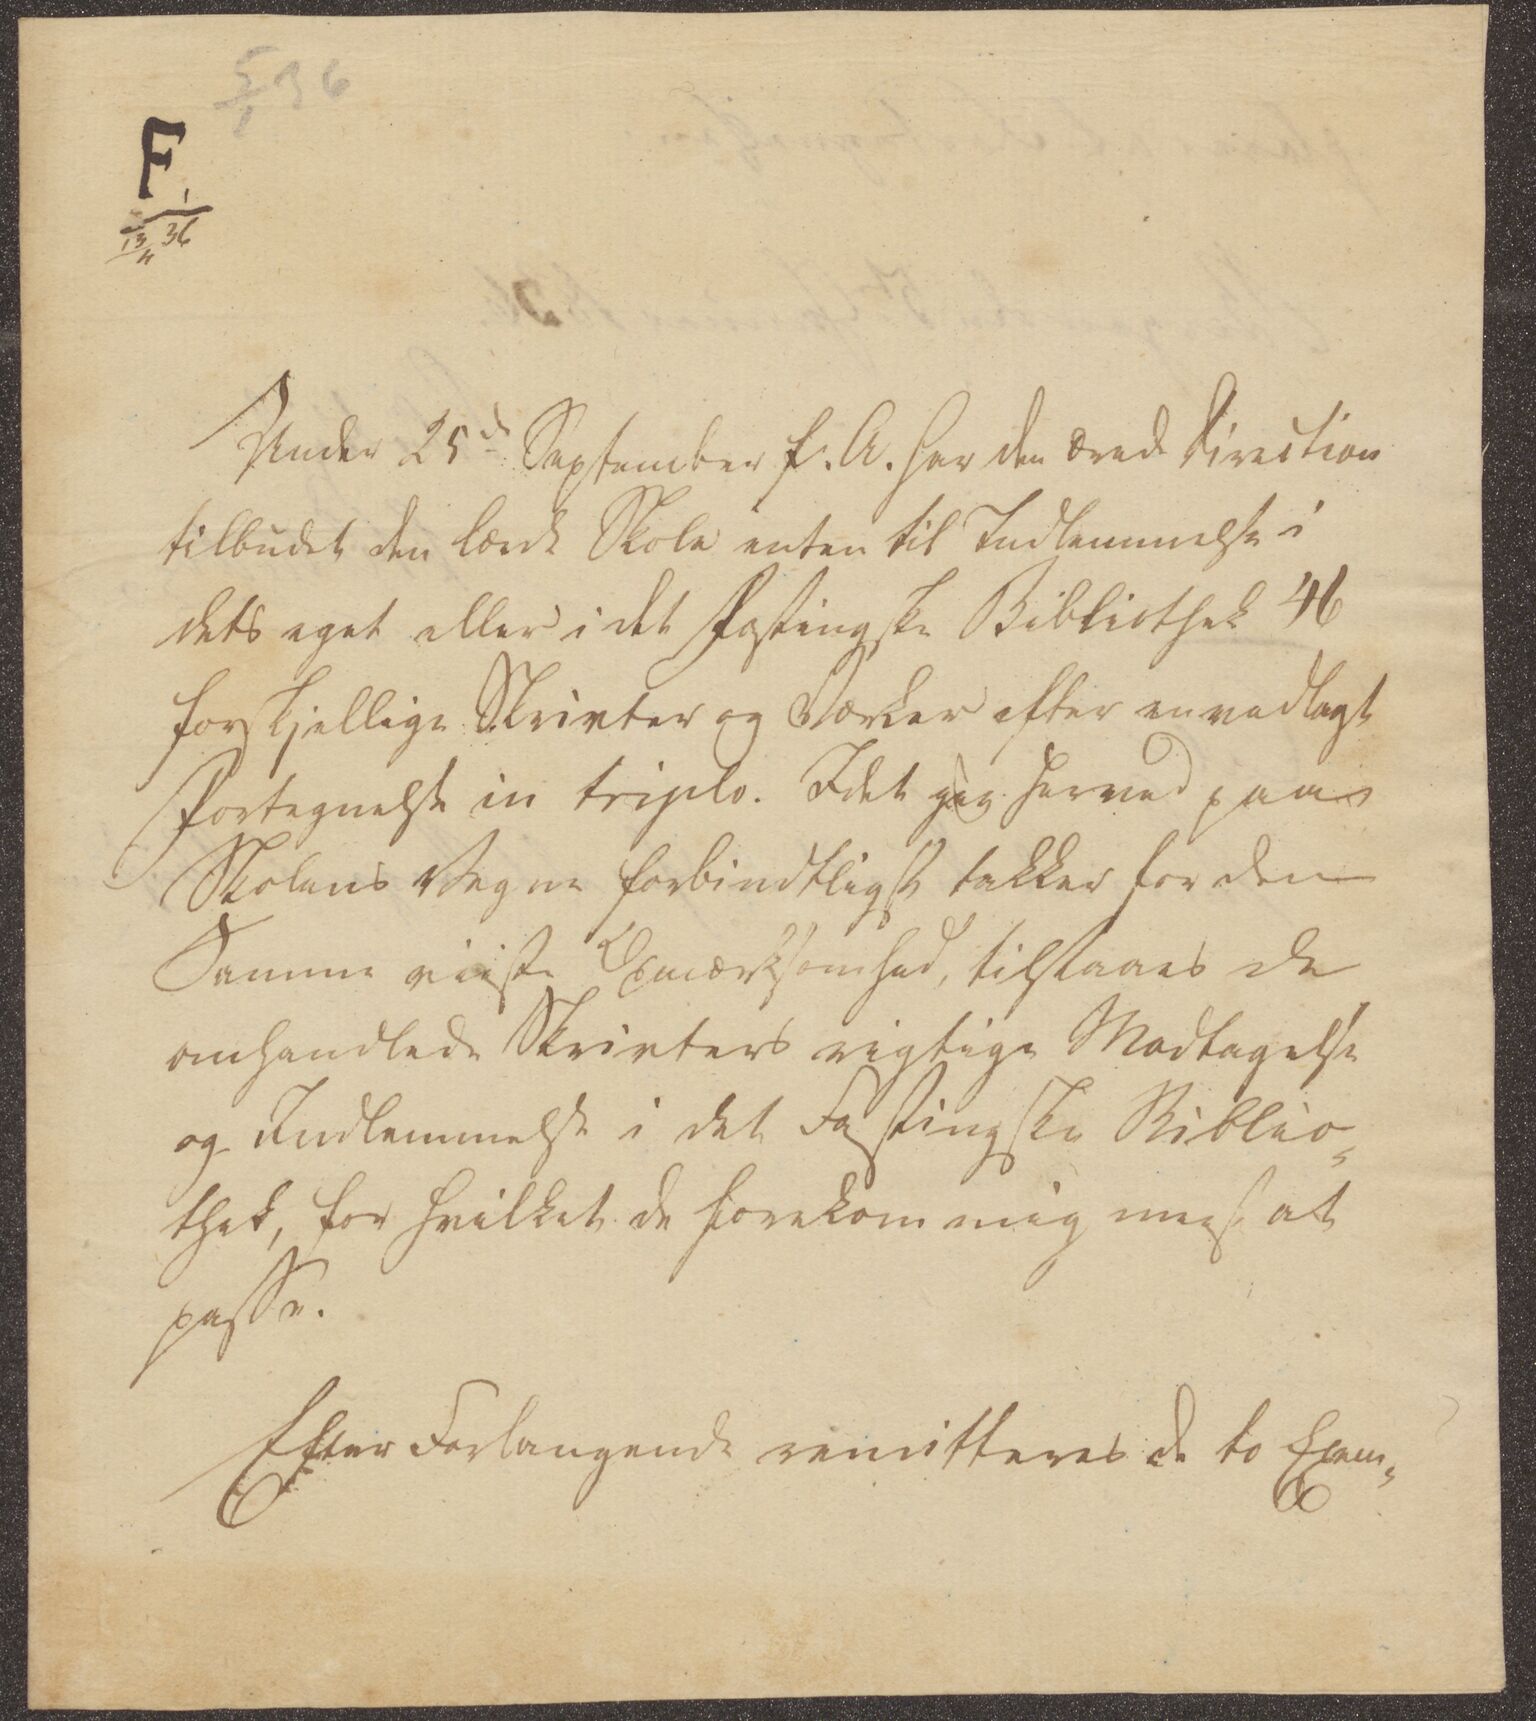 5/1 36
F. 1
13/4 36
Under 25d September f. A. har den ærede Direction
tilbudet den lærde Skole enten til Indlemmelse i
dets eget eller i det Fastingske Bibliothek 46
forskjellige Skrivter og Værker efter en vedlagt
Fortegnelse in triplo. Idet jeg herved paa
Skolens Vegne forbindtligst takker for den
Samme viiste Opmærksomhed, tilstaaes de
omhandlede Skrivters rigtige Modtagelse
og Indlemmelse i det Fastingske Biblio-
thek, for hvilket de forekom mig mest at
passe.
Efter Forlangende remitteres de to Exem-